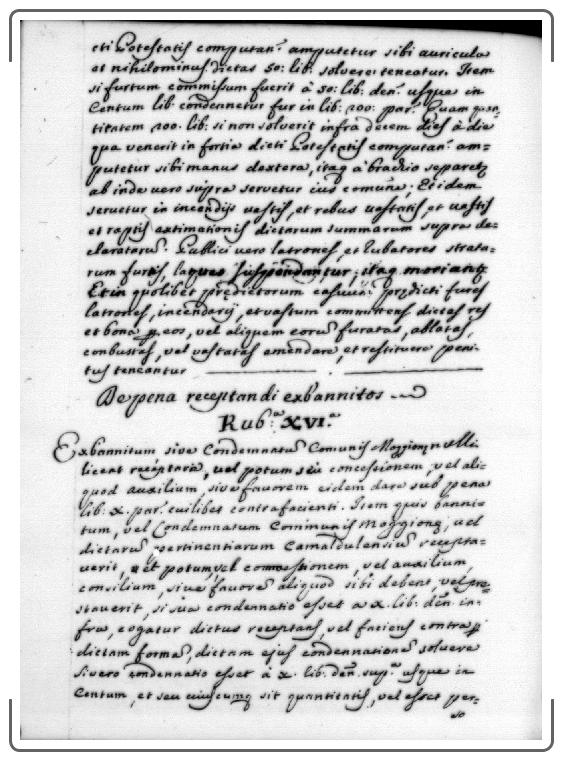 cti Potestatis computan: amputetur sibi auricula
et nihilominus dictas 50: lib: solvere teneatur. Item
si furtum commissum fuerit à 50: lib: den: usque in
Centum lib: condennetur fur in lib: 200: par: Quam quan-
titatem 200: lib: si non solverit infra decem dies à die
qua venerit in fortia dicti Potestatis computan: am-
putetur sibi manus dextera, itaq à brachio separetq
ab inde vero supra servetur ius comune; Et idem
servetur in incendijs vastis, et rebus vastatis, et vastis
et raptis extimationis dictarum summarum supra de-
claratarū. Publici vero latrones, et Rubatores strata-
rum furtis, laqueo suspendantur, itaq moriantq
Et in quolibet predictorum casuū: prędicti fures
latrones, incendarij, et vastum committens dictas res
et bona p eos, vel aliquem eorū furatas, ablatas,
conbustas, vel vastatas emendare, et restituere peni-
tus teneantur
De pena receptandi exbannitos
Rub:ª XVI.ª
Exbannitum sive Condemnatū Comunis Moggionę nulli
liceat receptaria, vel potum seu concessionem, vel ali-
quod auxilium, sive favorem eidem dare sub pena
lib: x. par: cuilibet contrafacienti. Item quis banni-
tum, vel Condemnatum Communis Moggionę, vel
dictarū pertinentiarum Camaldulensiū recepta-
verit, vel potum, vel commestionem, vel auxilium,
consilium, sive favorē aliquod sibi debent, vel pre-
staverit, si sua condennatio esset a x. lib: deñ: in-
fra, cogatur dictus receptans, vel faciens contra p
dictam formā, dictam ejus condennationē solvere
Si vero condennatio esset à x. lib: deñ: supª usque in
Centum, et seu cuiscumq sit quantitatis, vel esset per-
so